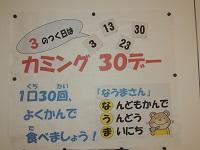 3のつく日は
3
13
23
30
カミング 30デー
1口30回、
よくかんで
食べましょう!
「なうまさん」
なんどもかんで
うんどう
まいにち